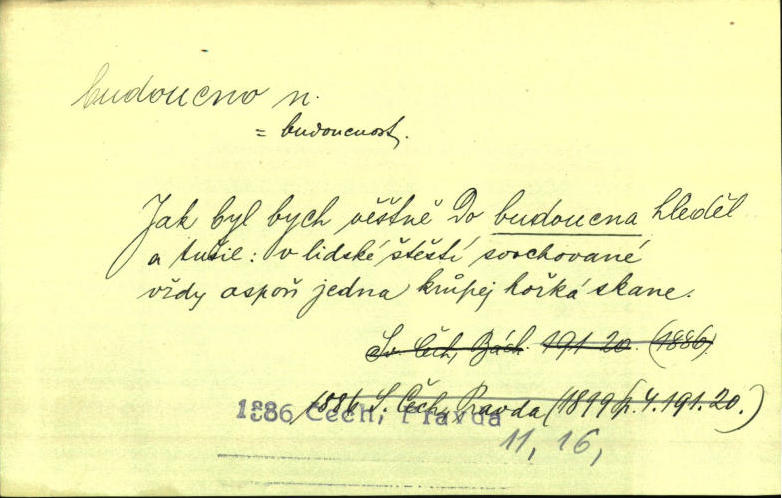 budoucno n.
= budoucnost.
Jak byl bych věštně do budoucna hleděl
a tušil: v lidské štěstí svrchované
vždy aspoň jedna krůpěj hořká skane.
Sv. Čech, Bách. 191 20. (1886).
1886 S. Čech, Pravda (1899) p. 4. 191. 20.)
1886 Čech, Pravda
11, 16,